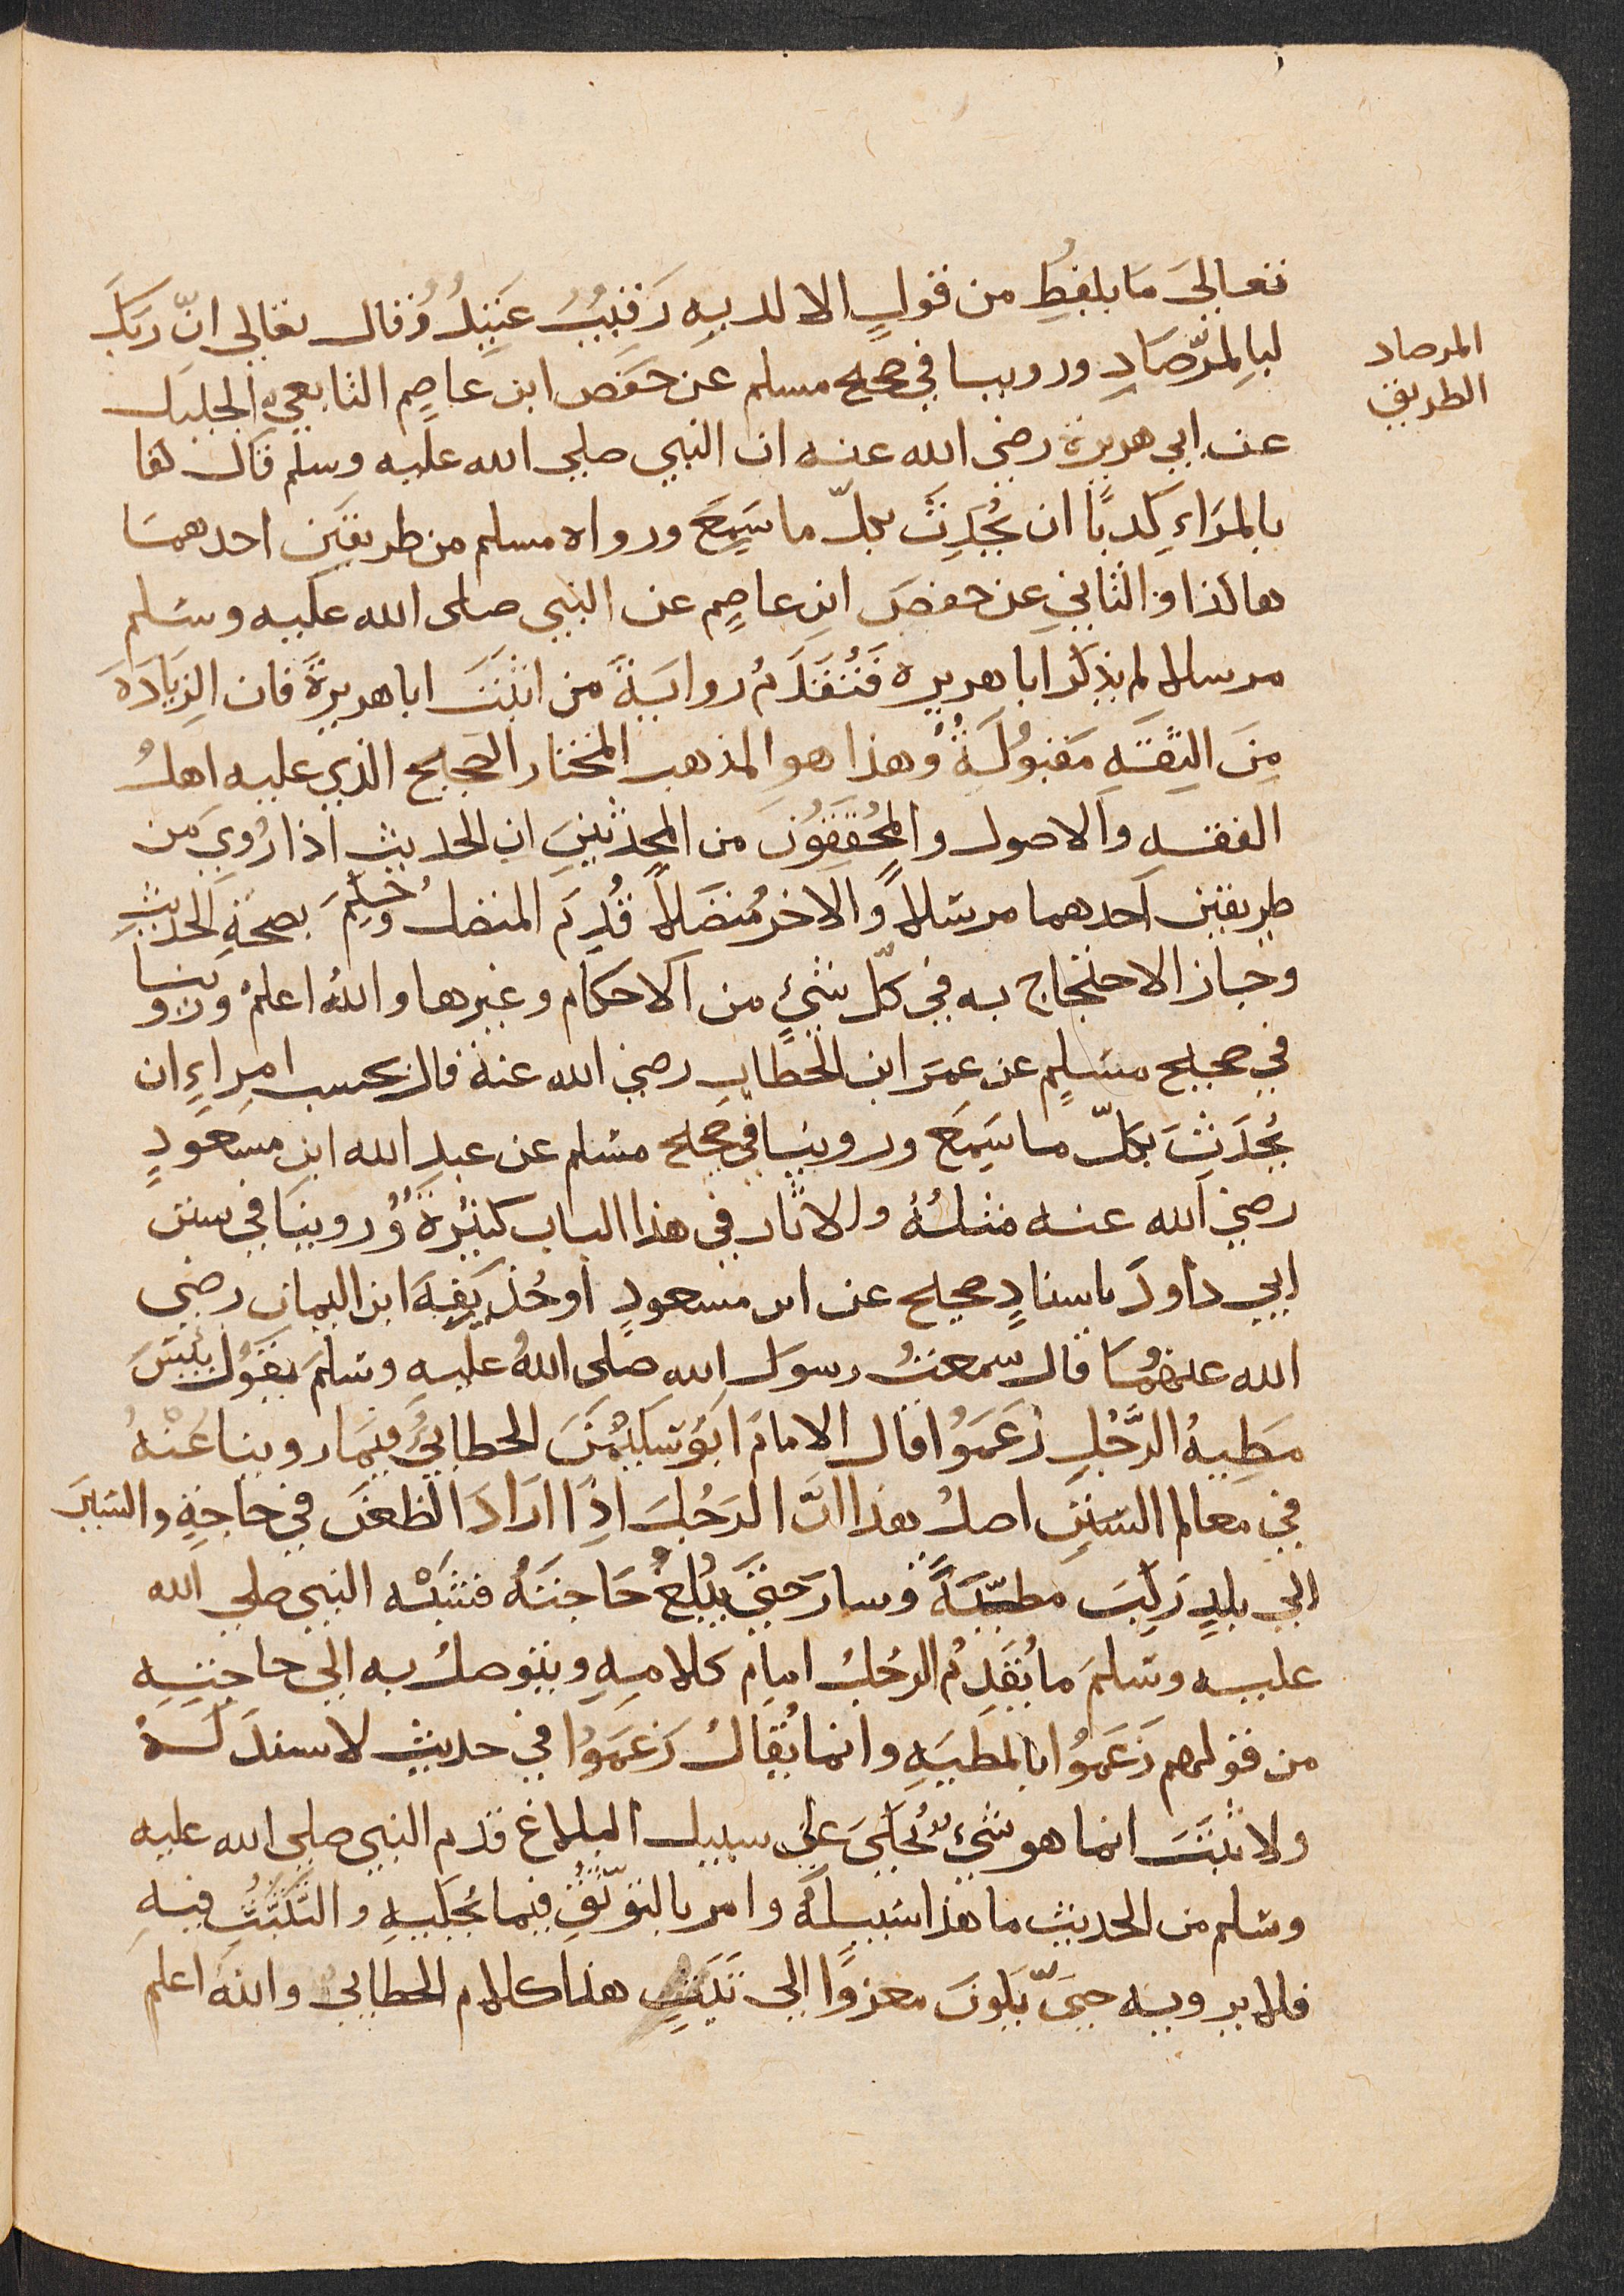 تعالى مَا يلفظِ من قولٍ الا لديهِ رَقيبُ عَتيدُ وُقال تعالى انّ رَبّكَ
لبِالمِرّصَادِ وروينا في صحيح مسلم عن حَفص ابن عاصِم التابعي الجليل
عن ابي هريرة رضي الله عنه ان النبي صلى الله عليه وسلم قال كفا
بالمَرَاءِ كَذبًا ان يُحدِثَ بكلّ ما سَمِعَ ورواه مسلم من طريقين احدهمَا
هاكذا والثاني عن حفص ابن عاصِم عن النبي صلى الله عليه وسَلم
مرسلا لم يذكر ابا هريره فَتُقَدَمُ روايَةً من اثبَتَ ابا هريرةً فان الزِيَادَةَ
مِنَ الثِقَه مَقبُولَةً وُهذا هو المذهب المختار الصحيح الذي عليه اهلُ
الفقه والاصول والمُحُققِوُنَ من المحدثينِ ان الحديث اذا رُوِيَ من
طريقين احدهما مرسَلاً والاخر مُتصَلاً قُدِمَ المتصلُ وحُكِمَ بصحَةِ الحديثِ
وجاز الاحتجاج به في كلّ شيٍ من الاحكام وغيرها واللهُ اعلمْ وروينا
في صحيح مسَلِم عن عمرَ ابن الخطابِ رضي الله عنهُ قال بحسب امرِاءٍ ان
يُحدِثَ بكلّ ما سَمِعَ وروينا في صحيح مسَلم عن عبدِ الله ابن مسعودٍ
رضي الله عنه مثلُهُ والاثار في هذا الباب كثيرةً وُروينَا في سنن
ابي داودَ باسنادٍ صحيح عن ابن مسعودٍ اوحُذَيفة ابن اليمان رضي
الله عنهُمَا قال سمعتُ رسول الله صلى اللهُ عليه وسَلمَ يَقوُل بئسَ
مَطِيهُ الرَّجُلِ زعَمَوُا قال الامامُ ابَوُ سَليْمَنَ الخطابيُّ فيمَا روينا عَنْهُ
في معالم السَننِ اصلُ هذا انَّ الرَجُلَ اذِا ارَادَ الظعَنَ في حاجَةٍ والسَيرَ
الي بلدٍ رَكِبَ مطيّتَةً وسارَ حَتيَّ يبُلغُ حَاجتَهُ فشَبْه النبي صلى الله
عليه وسَلمَ ما يُقَدِمُ الرجُلُ امام كلامِهِ ويتوصلُ به الى حاجتِهِ
من قولهم زَعَموُا بالمَطيَهِ وانما يُقالُ زَعَمَوُا في حديثِ لا سندَ لَهُ
ولا ثبَتَ انما هو شيُ يُحكَيَ على سبيل البلاغ قدم النبي صلى الله عليه
وسَلم من الحديث ما هذا سَبيلهُ وامر بالتوَثّقُ فيما يُحكيهِ والتَّثَبُتِ فيهِ
فلا يرويه حتىّ يَكوُنَ معزوًا الى ثَبَتٍ هذا كلام الخطابى والله اعلم
المرصاد
الطريق